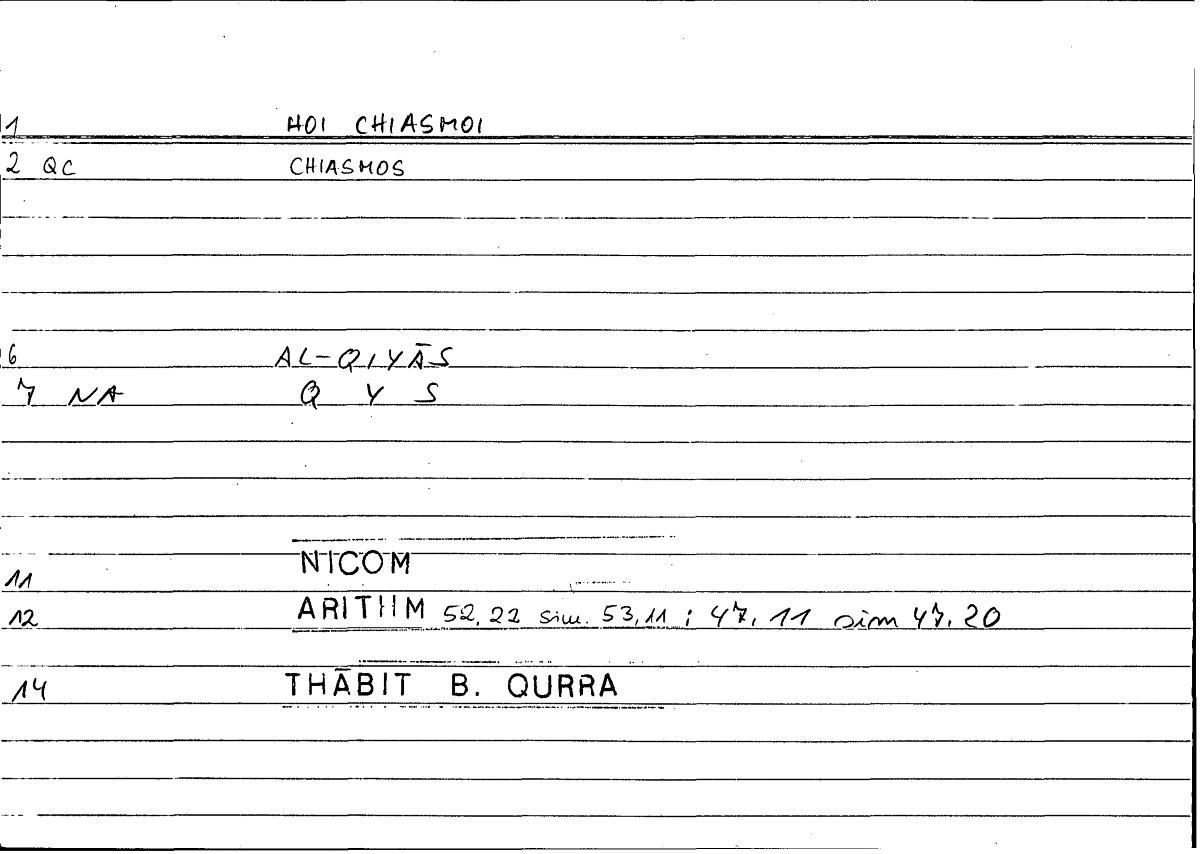 1 HOI CHIASMOI
2 QC CHIASMOS
6 AL-QIYĀS
7 NA Q Y S
11 NICOM
12 ARITHM 52,22 sim. 53,11 ; 47,11 sim 47,20
14 THĀBIT B. QURRA